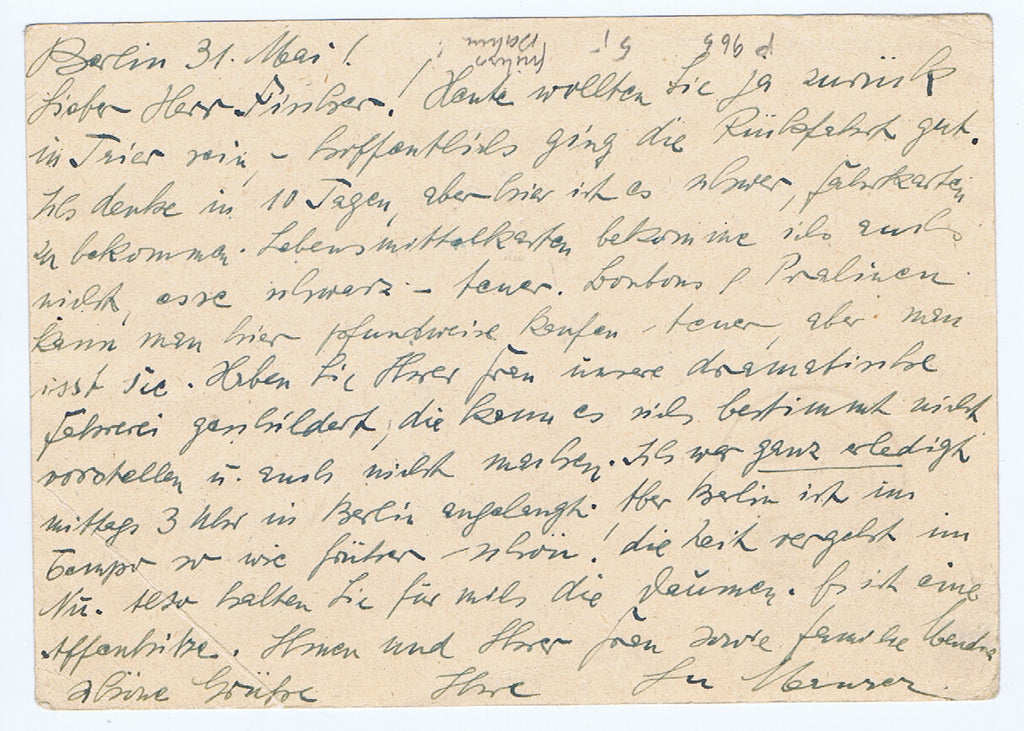 Berlin 31. Mai!
Lieber Herr Fischer! Heute wollten Sie ja zurück
in Trier sein, – hoffentlich ging die Rückfahrt gut.
Ich denke in 10 Tagen, aber hier ist es schwer, Fahrkarten
zu bekommen. Lebensmittelkarten bekomme ich auch
nicht, esse schwarz – teuer. Bonbons, Pralinen
kann man hier pfundweise kaufen – teuer, aber man
isst sie. Haben Sie Ihrer Frau unsere dramatische
Fahrerei geschildert, die kann es sich bestimmt nicht
vorstellen u. auch nicht machen. Ich war ganz erledigt
mittags 3 Uhr in Berlin angelangt. Aber Berlin ist im
Tempo so wie früher – schön! die Zeit vergeht im
Nu. Also halten Sie für mich die Daumen. Es ist eine
Affenhitze. Ihnen und Ihrer Frau sowie Familie
schöne Grüße Ihre
P 965 5